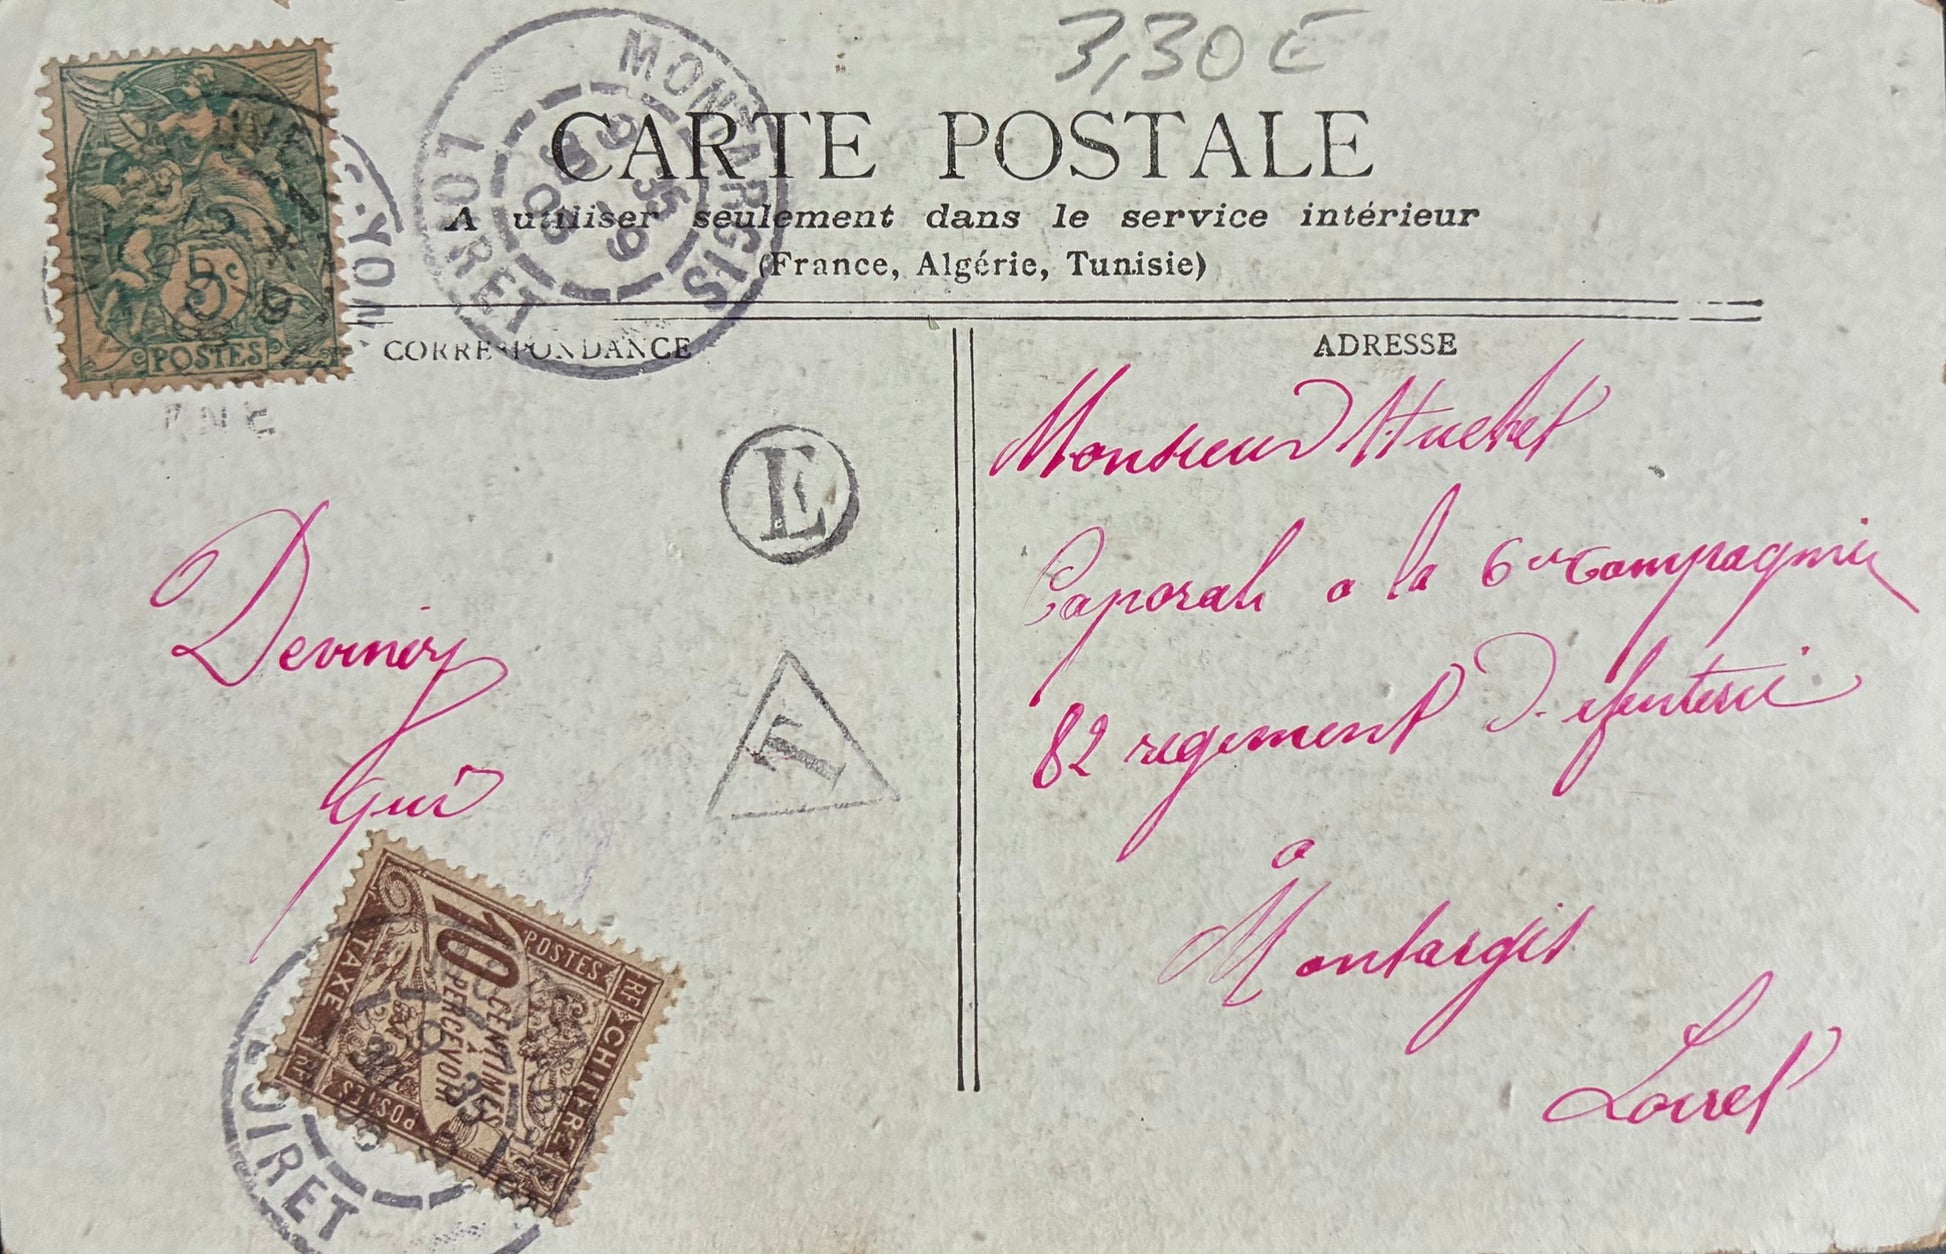 3,30 €
CARTE POSTALE
A utiliser seulement dans le service intérieur
(France, Algérie, Tunisie)
CORRESPONDANCE
ADRESSE
MONTARGIS
LOIRET
5c
POSTES
E
T
Devinez
Qui
Monsieur Huchet
Caporal a la 6e Compagnie
82 regiment D'infanterie
a
Montargis
Loiret
POSTES
RF
CHIFFRE
TAXE
10
CENTIMES
À
PERCEVOIR
POSTES
RF
LOIRET